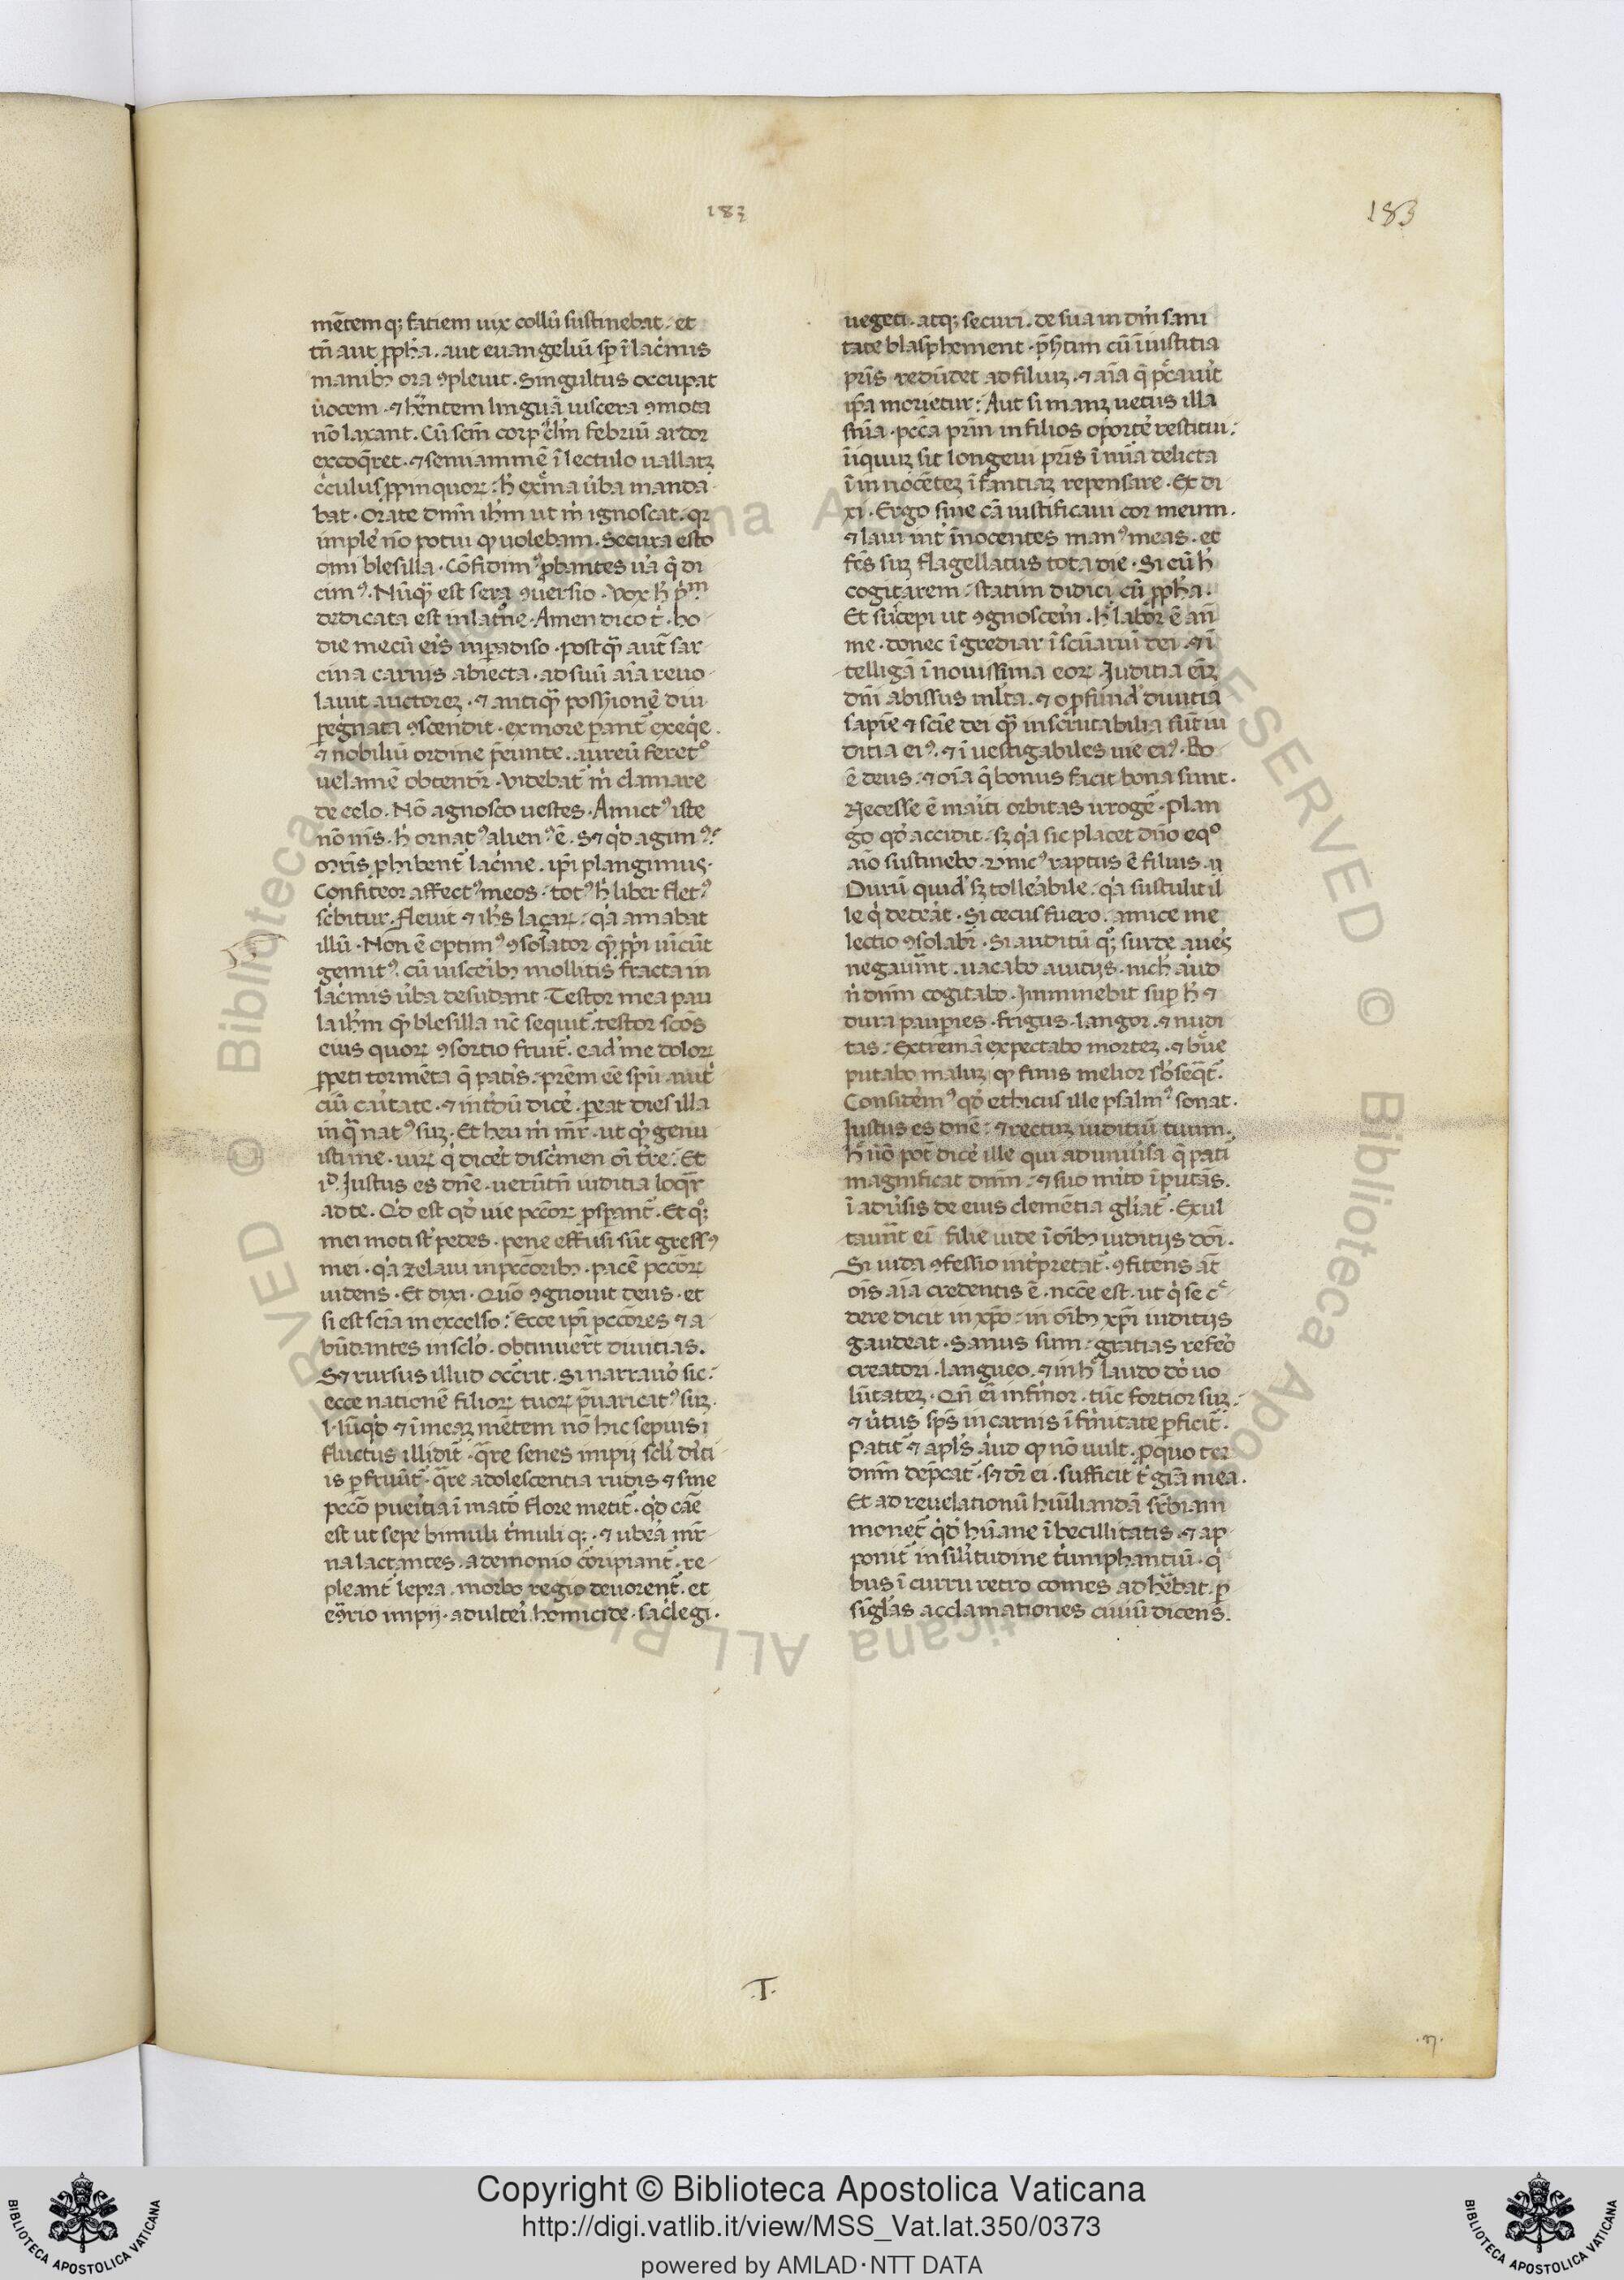 183
183
mētem q; fatiem uix collū sustinebat. et
tn̄ aut ꝓph̄a. aut euangeliū sp̄ ī lac̓mis
manibꝫ ora ꝯpleuit. Singultus occupat
uocem. ⁊ hēntem linguā uiscera ꝯmota
nō laxant. Cū sc̄m corpꝰclm̄ febriū ardor
excoq̄ret. ⁊ semiammē ī lectulo uallaꝫ
ċculus ꝓpinquoꝝ: h̓ exͣma ūba manda
bat. Orate dn̄m ihm̄ ut m̓ ignoscat. qꝛ
imple̓ nō potui qͩ uolebam. Secura esto
omi blesilla. Cōfidimꝰ ꝓbantes ūa q̄ di
cimꝰ. Nūqͣ est sera ꝯuersio. Vox h̓ p̓ᵐ
dedicata est in latͦne. Amen dico t̓. ho
die mecū eīs in ꝑadiso. postqͣ aut̄ sar
cina carnis abiecta. ad suū aīa reuo
lauit auctoreꝫ. ⁊ antiqͣ possionē diu
ꝑegnata ꝯscendit. ex more ꝑant̄ exeqͥe.
⁊ nobiliū ordine p̄eunte. aureū feretͦ
uelamē obtendr̄. Videbat̄ m̓ clamare
de celo. Nō agnosco uestes. Amictꝰ iste
nō m̄s. h̓ ornatꝰ alienꝰ ē. S; qͥd agimꝰ?
mr̄is ꝓhibent̄ lac̓me. ip̄i plangimus.
Confiteor affectꝰ meos. totꝰ h̓ liber fletꝰ
sc̓bitur. fleuit ⁊ ihs̄ laçaꝝ. qͥa amabat
illū. Non ē optimꝰ ꝯsolator qͣ ꝓpͥi uīcūt
gemitꝰ. cū uisce̓ibꝫ mollitis fracta in
lac̓mis ūba desudant. Testor mea pau
la ihm̄ qͣ blesilla nc̄ sequit̄. testor sc̄os
eius quoꝝ ꝯsortio fruit̄. ead̓ me doloꝝ
ꝑpeti tormēta q̄ patis. pr̄em eē spū. nut̓
ciū caritate. ⁊ int̓dū dice̓. peat dies illa
in qͣ natꝰ suꝫ. Et heu m̓ mr̄. ut qͥd genu
isti me. uiꝝ qͥ dicer̓ disc̓men oī tr̄e. Et
iͩ. Iustus es dn̄e. uerūtn̄ iuditia loqͣr
ad te. Qͥd est qͩ uie pcc̄oꝝ ꝓsꝑant̄. Et qͦ;
mei moti st̄ pedes. pene effusi sūt gressꝰ
mei. qͥa zelaui in pcc̄oribꝫ. pacē pcc̄oꝝ
uidens. Et dixi. Quō ꝯgnouit deus. et
si est scīa in excelso: Ecce ip̄i pcc̄ores ⁊ a
būdantes in sclo̓. obtinuer̄t diuitias.
S; rursus illud occ̓rit. Si narraūo sic:
ecce nationē filioꝝ tuoꝝ p̄uaricatꝰ suꝫ.
l. lūqͥd ⁊ ī meaꝫ mētem nō hic sepius i
fluctus illidit̄. qͣre senes impij scl̓i diti
is ꝑfruūt̄. qͣre adolescentia rudis ⁊ sine
pcc̄o pueritia ī matō flore metit̄. qͥd caē
est ut sepe bimuli t̓muli q;. ⁊ ubeͣ mr̄
na lactantes. ademonio cōripiant̄. re
pleant̄ lepra. morbo regio deuorent̄. et
eꝯrio impij. adulte̓i homicide. sac̓legi.
uegeti. atq; securi. de sua in dm̄ sani
tate blasphement. p̄h̓tim cū īiustitia
pr̄is redūdet ad filiuꝫ. ⁊ aīa q̄ pcͨauit
ip̄a morietur: Aut si manꝫ uetus illa
sn̄ia. pcc̄a pr̄m in filios oporte̓ restitui:
īiquuꝫ sit longeui pr̄is ī nūa delicta
ī innocēteꝫ īfantiaꝫ repensare. Et di
xi. Ergo sine cā iustificaui cor meum.
⁊ laui int̓ īnocentes manꝰ meas. et
fc̄s suꝫ flagellatus tota die. Si cū h̓
cogitarem: statim didici cū ꝓph̄a.
Et suc̓epi ut ꝯgnoscem̓. hͦ labor ē an̄
me. donec īgrediar ī sc̄uariū dei. ⁊ ī
telligā ī nouissima eoꝝ. Iuditia eīꝫ
dn̄i abissus ml̓ta. ⁊ o ꝓfund̓ diuitia
sapiē ⁊ sciē dei qͣ insc̓rutabilia sūt iu
ditia eiꝰ. ⁊ īuestigabiles uie eiꝰ. Bo
ē deus: ⁊ oīa q̄ bonus facit bona sunt.
Necesse ē mariti orbitas irrogē. Plan
go qͩ accidit. sꝫ qͥa sic placet dn̄o eqͦ
aīo sustinebo. Vnicꝰ raptus ē filius. ij
Durū quid̓ sꝫ tolle̓abile. qͥa sustulit il
le qͥ dede̓at. Si cecus fuero. amice me
lectio ꝯsolabr̄. Si auditū qͦ; surde aueṡ
negauūnt. uacabo auitijs. nich̓ aͥud
n̓ dn̄m cogitabo. Imminebit suꝑ h̓ ⁊
dura paupies. frigus. langor. ⁊ nudi
tas: Extremā expectabo morteꝫ. ⁊ bͣue
putabo maluꝫ qͩ finis melior sb̓seqͥt̄.
Conside̓mꝰ qͩ ethicus ille psalmꝰ sonat.
Iustus es dn̄e: ⁊ rectuꝫ iuditiū tuum.
Hͦ nō pot̄ dice̓ ille qui ad uniūsa q̄ pati
magnificat dn̄m: ⁊ suo m̓ito īputās.
ī adūsis de eius clemētia gl̓iat̄. Exul
tauūt ei filie iude ī oībꝫ iuditijs dn̄i.
Si iuda ꝯfessio int̓pretat̄. ꝯfitens at̄
oīs aīa credentis ē. nc̄ce est. ut qͥ se c̓
dere dicit in xp̄o. in oībꝫ xp̄i iuditijs
gaudeat. Sanus sum: gratias refe̓o
creatori. langueo. ⁊ in hͦ laudo dō uo
lūtateꝫ. Qn̄ eī infirmor. tūc fortior suꝫ:
⁊ ūtus sps̄ in carnis īfirmitate ꝑficit̄.
Patit̄ ⁊ apl̓s aͥud qͩ nō uult. ꝓ quo ter
dn̄m dep̄cat̄. s; dr̄ ei. sufficit t̓ gr̄a mea.
Et ad reuelationū hūiliandā sꝑbiam
monet̄ qͥdͣ hūane ībecillitatis. ⁊ ap
ponit̄ in sil̓itudine t̓umphantiū. qͥ
bus ī curru retro comes adhēbat. ꝑ
sigl̓as acclamationes ciuiū dicens.
.T.
.n.
© Biblioteca Apostolica Vaticana ALL RIGHTS RESERVED
Copyright © Biblioteca Apostolica Vaticana
http://digi.vatlib.it/view/MSS_Vat.lat.350/0373
powered by AMLAD·NTT DATA
BIBLIOTECA APOSTOLICA VATICANA
BIBLIOTECA APOSTOLICA VATICANA